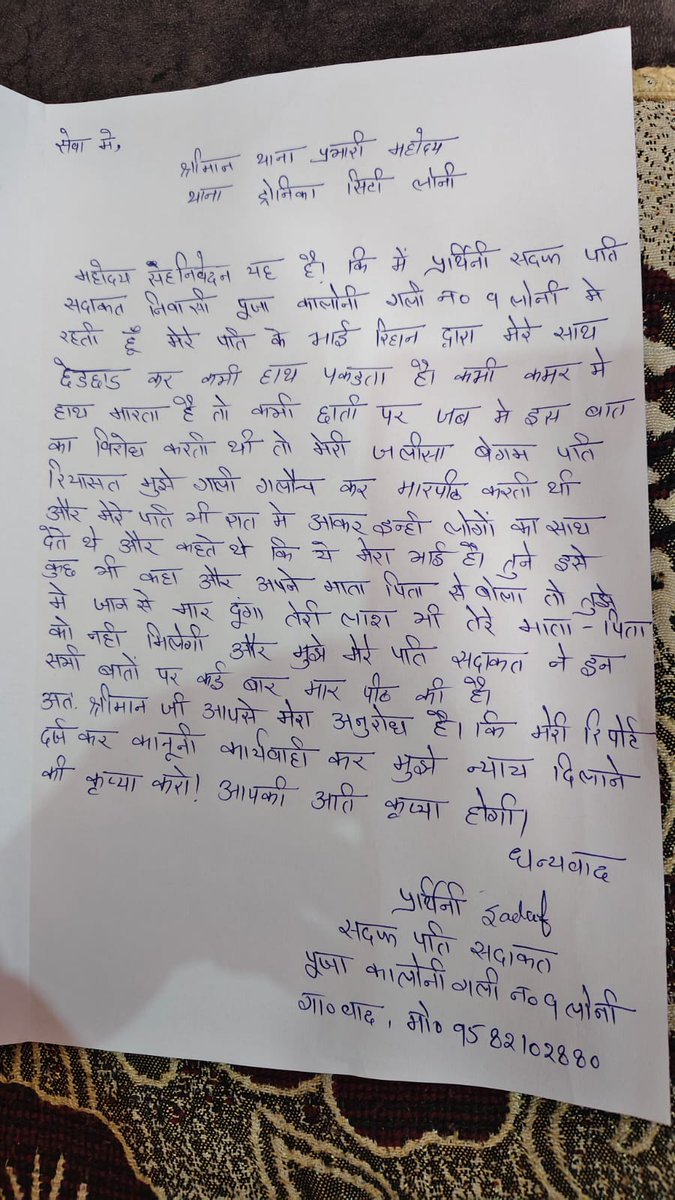 सेवा मे,
श्रीमान थाना प्रभारी महोदय
थाना ट्रोनिका सिटी लोनी
महोदय सहनिवेदन यह है। कि में प्रार्थिनी सदफ पति
सदाकत निवासी पूजा कालोनी गली न० 9 लोनी मे
रहती हूँ मेरे पति के भाई रिहान द्वारा मेरे साथ
छेडछाड कर कभी हाथ पकडता है। कभी कमर मे
हाथ मारता है तो कभी छाती पर जब मे इस बात
का विरोध करती थी तो मेरी जलीसा बेगम पति
रियासत मुझे गाली गलौच कर मारपीठ करती थी
और मेरे पति भी रात मे आकर इन्ही लोगों का साथ
देते थे और कहते थे कि ये मेरा भाई है। तुने इसे
कुछ भी कहा और अपने माता पिता से बोला तो तुझे
मे जान से मार दूंगा तेरी लाश भी तेरे माता-पिता
को नही मिलेगी और मुझे मेरे पति सदाकत ने इन
सभी बातों पर कई बार मार पीठ की है।
अतः श्रीमान जी आपसे मेरा अनुरोध है। कि मेरी रिपोर्ट
दर्ज कर कानूनी कार्यवाही कर मुझे न्याय दिलाने
की कृप्या करो! आपकी अति कृप्या होगी।
धन्यवाद
प्रार्थिनी Sadaf
सदफ पति सदाकत
पूजा कालोनी गली न० 9 लोनी
गा०वाद, मो० 9582102880